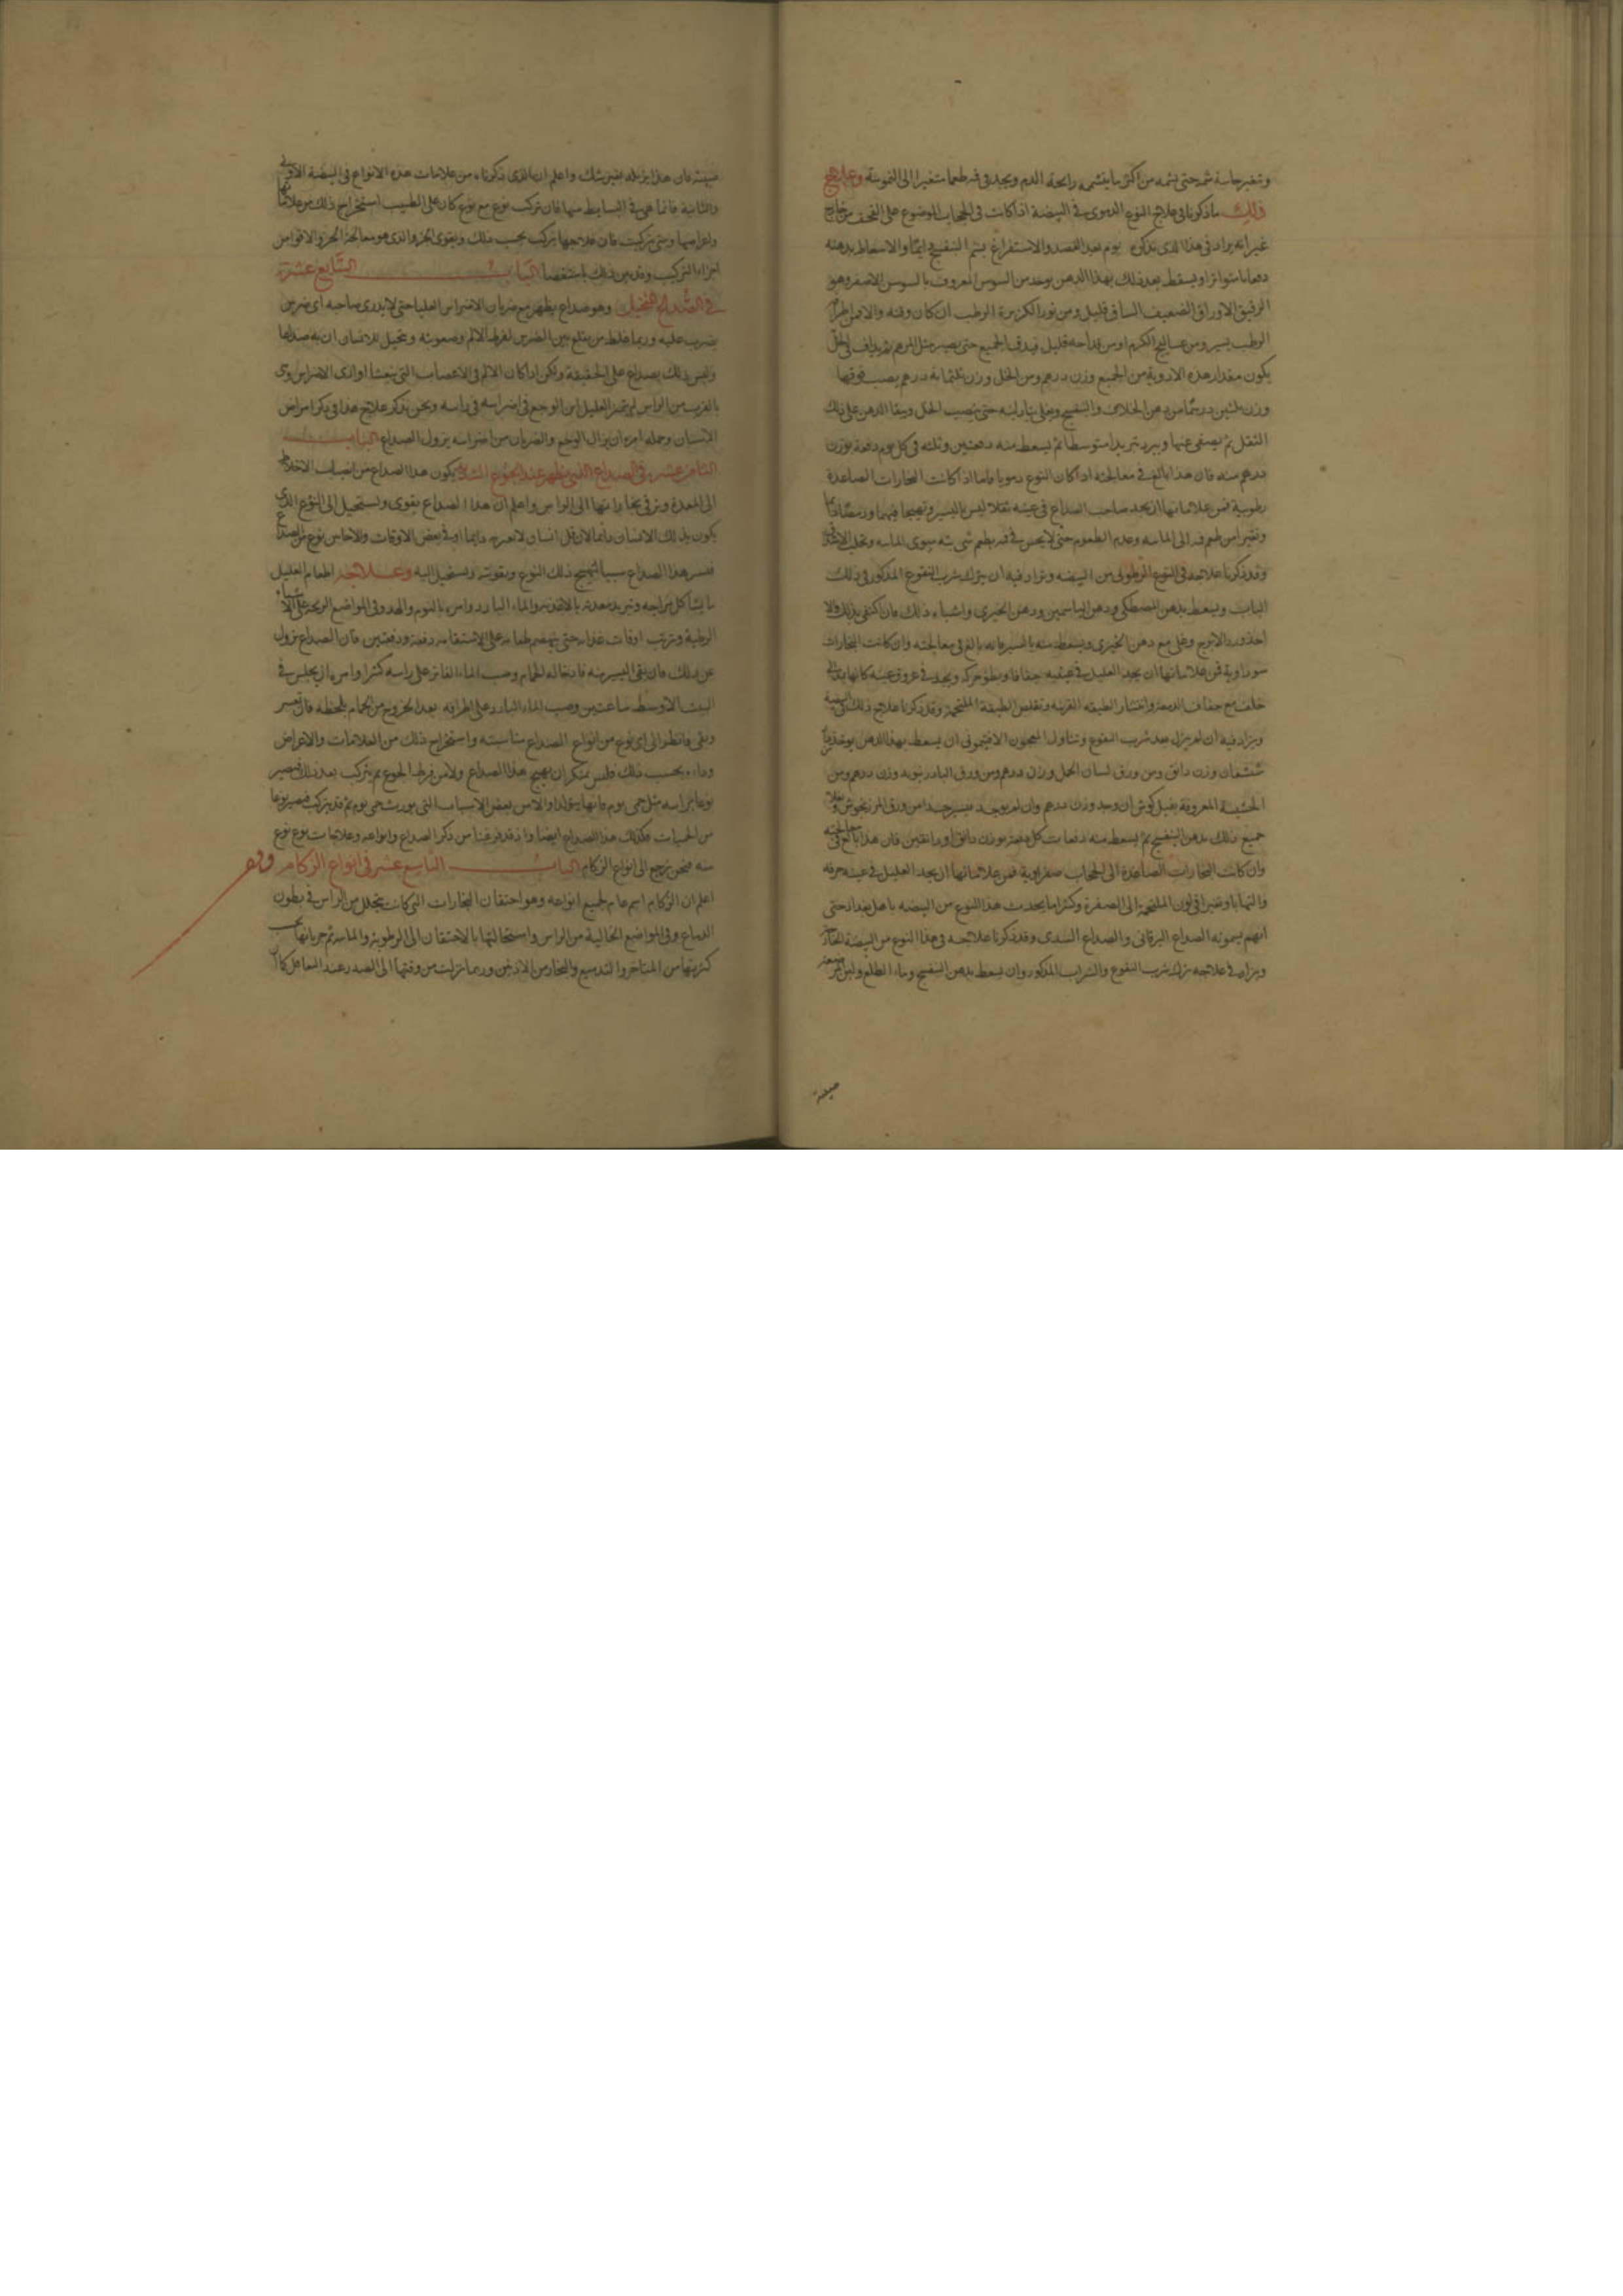 وتتغير حاسة شمه حتى يشمه من اكثر ما يشمه رايحة الدم ويجد في فمه طعما متغيرا الى التموسة وعلاج
ذلك ما ذكرنا في علاج النوع الدموى في البيضة اذا كانت في الحجاب الموضوع على القحف من خارج
غير انه يزاد في هذا الذى نذكره يوم بعد الفصد والاستفراغ يشم البنفسج دايما والاسعاط بدهنه
دفعات متواترا ويسقط بعد ذلك بهذا الدهن يوخذ من السوس المعروف بالسوس الاصفر وهو
الرقيق الاوراق الضعيف الساق قليل ومن نور الكزبرة الرطب ان كان وقته والا من
الرطب يسير ومن عساليج الكرم او من قداحه قليل فيدق الجميع حتى يصير مثل المرهم ثم يداف في الخل
يكون مقدار هذه الادوية من الجميع وزن درهم ومن الخل وزن ثلثماية درهم يصب فوقها
وزن ثلثين درهما من دهن الخلاف والبنفسج ويغلى بنار لينة حتى ينضب الخل ويبقا الدهن على ذلك
الثفل ثم يصفى عنها ويبرد تبريدا متوسطا ثم يسعط منه دفعتين وثلثه في كل يوم دفعة بوزن
درهم منه فان هذا بالغ في معالجته اذا كان النوع دمويا فاما اذا كانت البخارات الصاعدة
رطوبية فمن علاماتها ان يجد صاحب الصداع في عينه ثقلا ليس باليسير وتهيجا فيهما ورمصا دايما
وتغيرا من طعم فمه الى المائيه وعدم الطعوم حتى لا يحس في فمه بطعم شى بته سوى المائيه
وقد ذكرنا علاجه في النوع الرطوبى من البيضه ويزاد فيه ان يترك شرب النقوع المذكور في ذلك
الباب ويسعط بدهن المصطكى ودهن الياسمين ودهن الخيرى واشباه ذلك فان اكتفى بذلك والا
اخذ ورد الاترج وغلى مع دهن الخيرى ويسعط منه باليسير فانه بالغ في معالجته وان كانت البخارات
سوداوية فمن علاماتها ان يجد العليل في عينيه جفافا وبطو حركه ويجد في عروق عينه كانها
خلف مع جفاف الدمعة وانتشار الطبقه القرنيه وتقلص الطبقة الملتحمه وقد ذكرنا علاج ذلك في البيضة
ويزاد فيه ان لم يزل بعد شرب النقوع وتناول المعجون الافتيمونى ان يسعط بهذا الدهن يوخذ
وزن دانق ومن ورق لسان الحمل وزن درهم ومن ورق البادرنبويه وزن درهم ومن
الحشيشة المعروفة بفيل كوش ان وجد وزن درهم وان لم يوجد فيسير جدا من ورق المرزنجوش
جميع ذلك بدهن البنفسج ثم يسعط منه دفعات كل دفعة بوزن دانق او دانقين فان هذا بالغ في معالجته
وان كانت البخارات الصاعدة الى الحجاب صفراوية فمن علاماتها ان يجد العليل في عينه حرقه
والتهابا وتغيرا في لون الملتحمة الى الصفرة وكثيرا ما يحدث هذا النوع من البيضه باهل بغداد حتى
انهم يسمونه الصداع اليرقانى والصداع السدى وقد ذكرنا علاجه في هذا النوع من البيضة
ويزاد في علاجه ترك شرب النقوع والشراب المذكور وان يسعط بدهن البنفسج وماء الطلع ولبن
صبيته فان هذا يزيله بغير شك واعلم ان الذى ذكرناه من علامات هذه الانواع في البيضة الاولى
والثانية فانما هى في البسايط منها فان تركب نوع مع نوع كان على الطبيب استخراج ذلك من علاماتها
واعراضها ومتى تركبت فان علاجها يتركب بحسب ذلك ويقوى الجزو الذى هو معالجة الجزو الاقوا من
اجزاء التركيب وقد بين ذلك باستقصا الباب السابع عشر
في الصداع المتخيل وهو صداع يظهر مع ضربان الاضراس العليا حتى لا يدرى صاحبه اى ضرس
يضرب عليه وربما غلط من يقلع بين الضرس لفرط الالم وصعوبته ويتخيل للانسان ان به صداعا
وليس ذلك بصداع على الحقيقة ولكن اذا كان الالم في الاعصاب التى اوازى الاضراس وهى
بالقرب من الراس لم يتميز العليل اين الوجع في اضراسه في راسه ونحن نذكر علاج هذا في ذكر امراض
الاسنان وجمله امره ان يزال الوجع والضربان من اضراسه يزول الصداع الباب
الثامن عشر في الصداع الذى يظهر عند الجوع الشديد يكون هذا الصداع من انصباب الاخلاط
الى المعدة وترقى بخاراتها الى الراس واعلم ان هذا الصداع يقوى ويستحيل الى النوع الذى
يكون بذلك الانسان دايما لان قل انسان لا يعتريه دايما او في بعض الاوقات والاحايين نوع من الصداع
فيصير هذا الصداع سببا لتهييج ذلك النوع وتقويته ويستحيل اليه وعلاجه اطعام العليل
ما يشاكل مزاجه وتبريد معدته بالاغذيه والماء البارد وامره بالنوم والهدو في المواضع الريحة
الرطبة وترتيب اوقات غذاه حتى ينهضم طعامه على الاستقامه دفعة ودفعتين فان الصداع يزول
عن ذلك فان بقى اليسير منه فادخاله الحمام وصب الماء الفاتر على راسه كثيرا وامره ان يجلس في
البيت الاوسط ساعتين وصب الماء البارد على اطرافه بعد الخروج من الحمام بلحظه فان
وبقى فانظر الى اى نوع من انواع الصداع مناسبته واستخراج ذلك من العلامات والاعراض
وداوه بحسب ذلك فليس بمنكر ان يهيج هذا الصداع ولا من فرط الجوع ثم يتركب بعد ذلك فيصير
نوعا براسه مثل حمى يوم فانها يتولد اولا من بعض الاسباب التى يورث حمى يوم ثم قد يتركب فيصير نوعا
من الحميات فكذلك هذا الصداع ايضا واذ قد فرغنا من ذكر الصداع وانواعه وعلامات نوع نوع
منه فنحن نرجع الى انواع الزكام الباب التاسع عشر في انواع الزكام وهو
اعلم ان الزكام اسم عام لجميع انواعه وهو احتقان البخارات التى كانت تتحلل من الراس في بطون
الدماغ وفي المواضع الخالية من الراس واستحالتها بالاحتقان الى الرطوبة والمائيه ثم جريانها
كثرتها من المناخر والتدميع والبخار من الاذنين وربما نزلت من وقتها الى الصدر عند السعا
صبيته